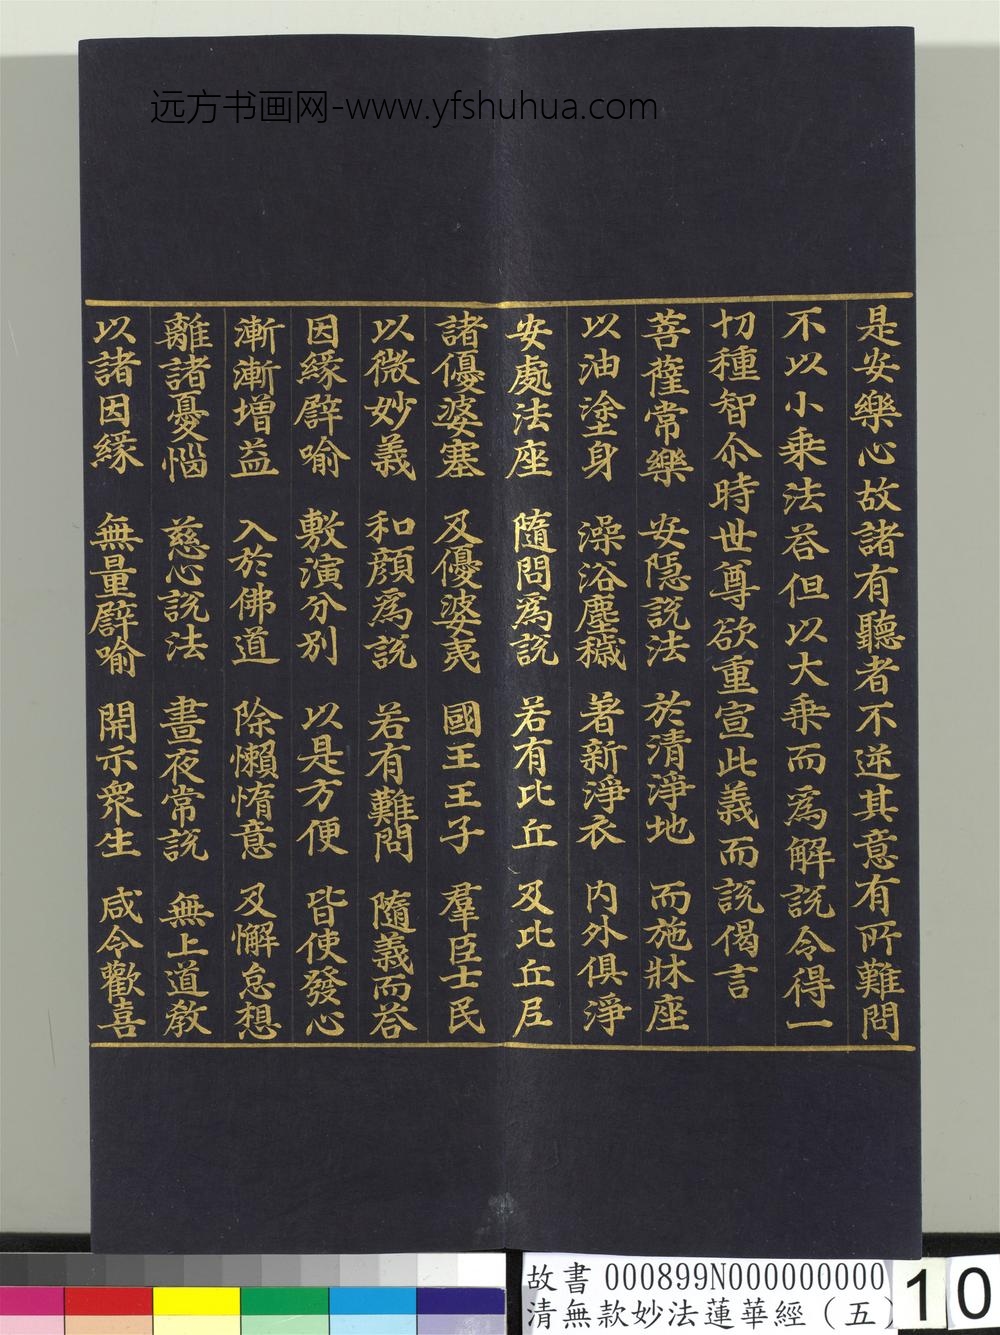 远方书画网-www.yfshuhua.com
是安樂心故諸有聽者不逆其意有所難問
不以小乘法荅但以大乘而為解說令得一
切種智尒時世尊欲重宣此義而說偈言
菩薩常樂 安隱說法 於清淨地 而施牀座
以油塗身 澡浴塵穢 著新淨衣 內外俱淨
安處法座 隨問為說 若有比丘 及比丘尼
諸優婆塞 及優婆夷 國王王子 羣臣士民
以微妙義 和顏為說 若有難問 隨義而荅
因緣譬喻 敷演分別 以是方便 皆使發心
漸漸增益 入於佛道 除懶惰意 及懈怠想
離諸憂惱 慈心說法 晝夜常說 無上道教
以諸因緣 無量譬喻 開示衆生 咸令歡喜
故書 000899N000000000
清無款妙法蓮華經（五）
10